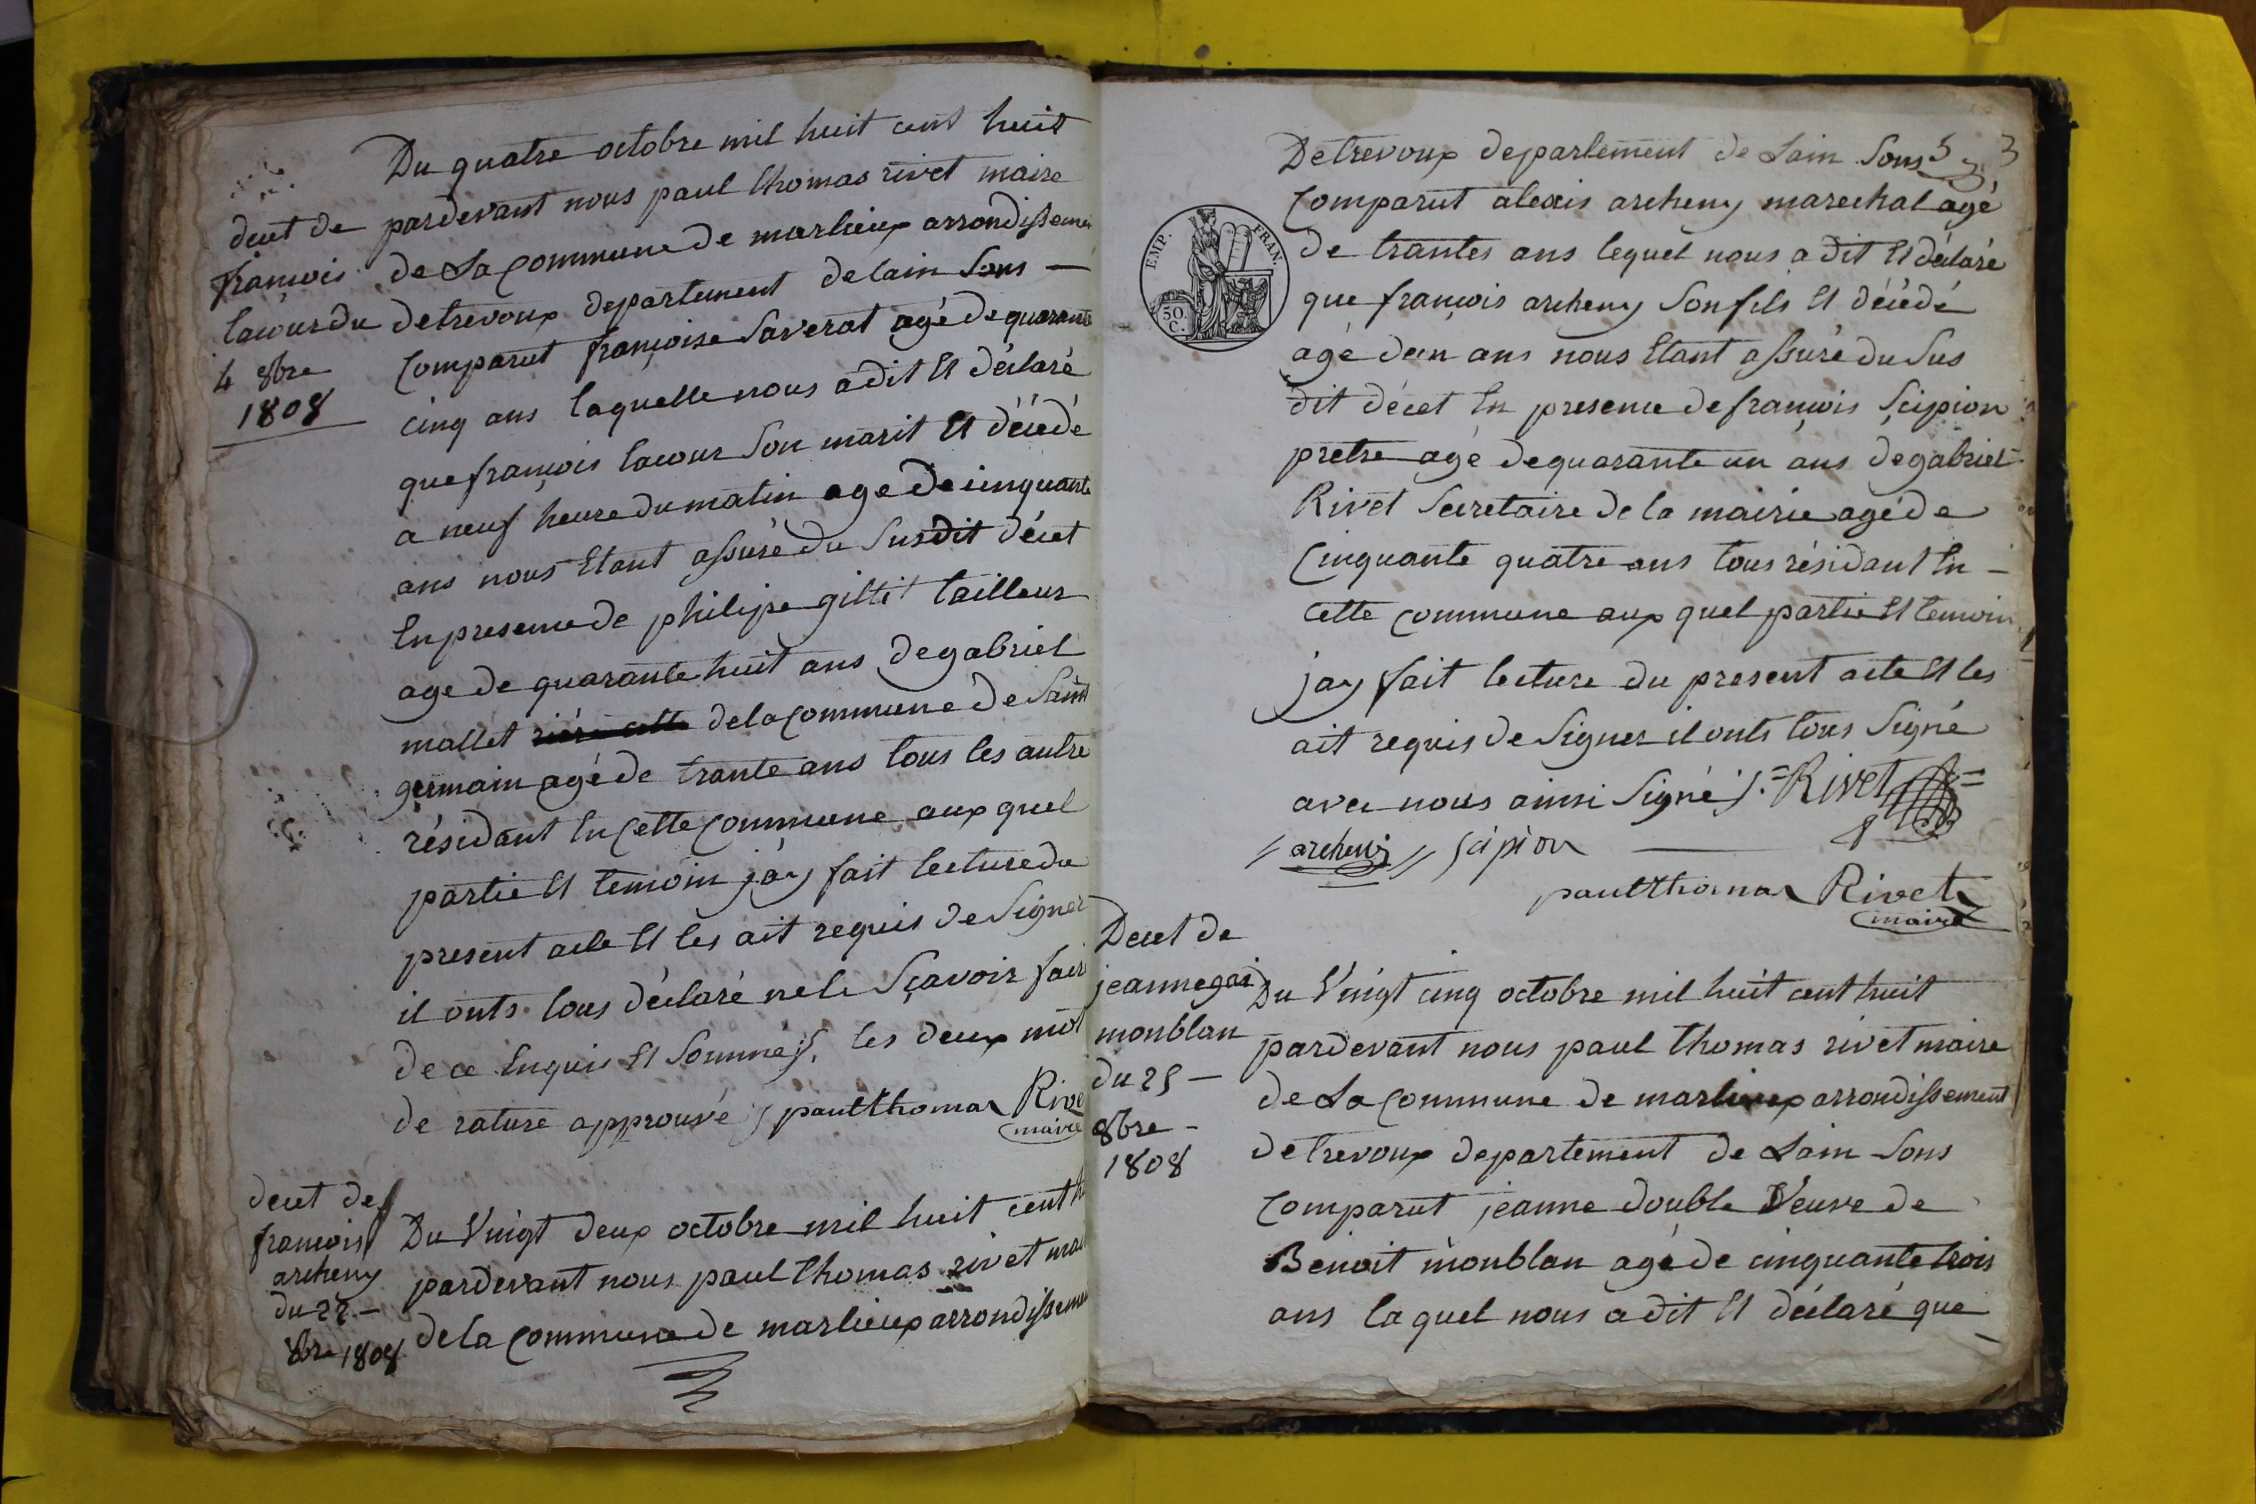 decet de
françois
lacour du
4 8bre
1808
Du quatre octobre mil huit cent huit
pardevant nous paul thomas rivet maire
de La Commune de marlieux arrondissemen
detrevoux departement delain Sons —
Comparut françoise Saverat agé de quarante
cinq ans laquelle nous adit Et déclaré
que françois lacour Son marit Et décédé
a neuf heure du matin age de cinquante
ans nous Etant assuré du Susdit décet
En presence de philipe gilti tailleur
age de quarante huit ans de gabriel
mallet de la Commune de Saint
germain agé de trante ans tous les autre
résidant En Cette Commune aux quel
partie Et temoin j'ay fait lecture du
present acte Et les ait requis de Signer
il onts tous déclaré nele Sçavoir fair
de ce Enquis Et Sommés. les deux mot
de rature approuvé paul thomas Rive
maire
decet de
françois
archeny
du 22 —
8bre 1808
Du Vingt deux octobre mil huit cent h
pardevant nous paul thomas rivet mai
de la Commune de marlieux arrondisseme
3
Detrevoux departement de Lain Sons
Comparut alexis archeny marechal agé
de trantes ans lequel nous a dit Et déclaré
que françois archeny Son fils Et décédé
agé dun ans nous Etant assuré du Sus
dit décet En presence de françois Scipion
pretre agé de quarante un ans de gabriel
Rivet Secretaire de la mairie agé de
Cinquante quatre ans tous résidant En —
cette Commune aux quel partie Et temoin
jay fait lecture du present acte Et les
ait requis de Signer il onts tous Signé
avec nous ainsi Signé = Rivet =
archeny Scipion
paul thomas Rivet
maire
EMP. FRAN.
50
C.
Decet de
jeanne gai
monblan
du 25 —
8bre —
1808
Du Vingt cinq octobre mil huit cent huit
pardevant nous paul thomas rivet maire
de La Commune de marlieux arrondissement
detrevoux departement de Lain Sons
Comparut jeanne double Veuve de
Benoit monblan agé de cinquante trois
ans laquel nous a dit Et déclaré que